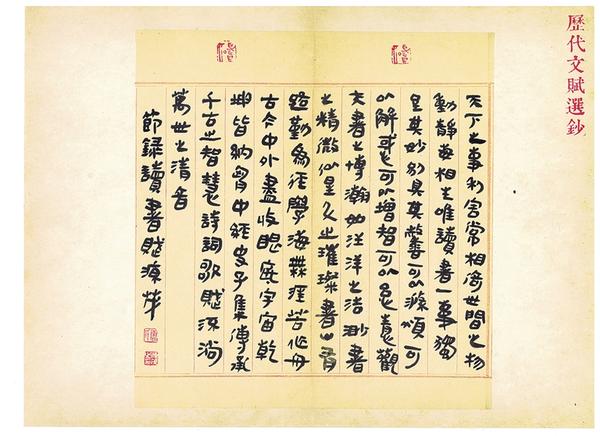 歷代文賦選鈔
天下之事利害常相倚世間之物
動靜每相生唯讀書一事獨
呈其妙別具其可以滌煩可
以解惑可以增智可以怡意觀
夫書之博瀚如汪洋之浩渺書
之精微似星之璀璨書山有
路勤為徑學海無涯苦作舟
古今中外盡收眼底宇宙乾
坤皆納胸中經史子集傳承
千古之智慧詩詞歌賦流淌
萬世之清音
節錄讀書賦